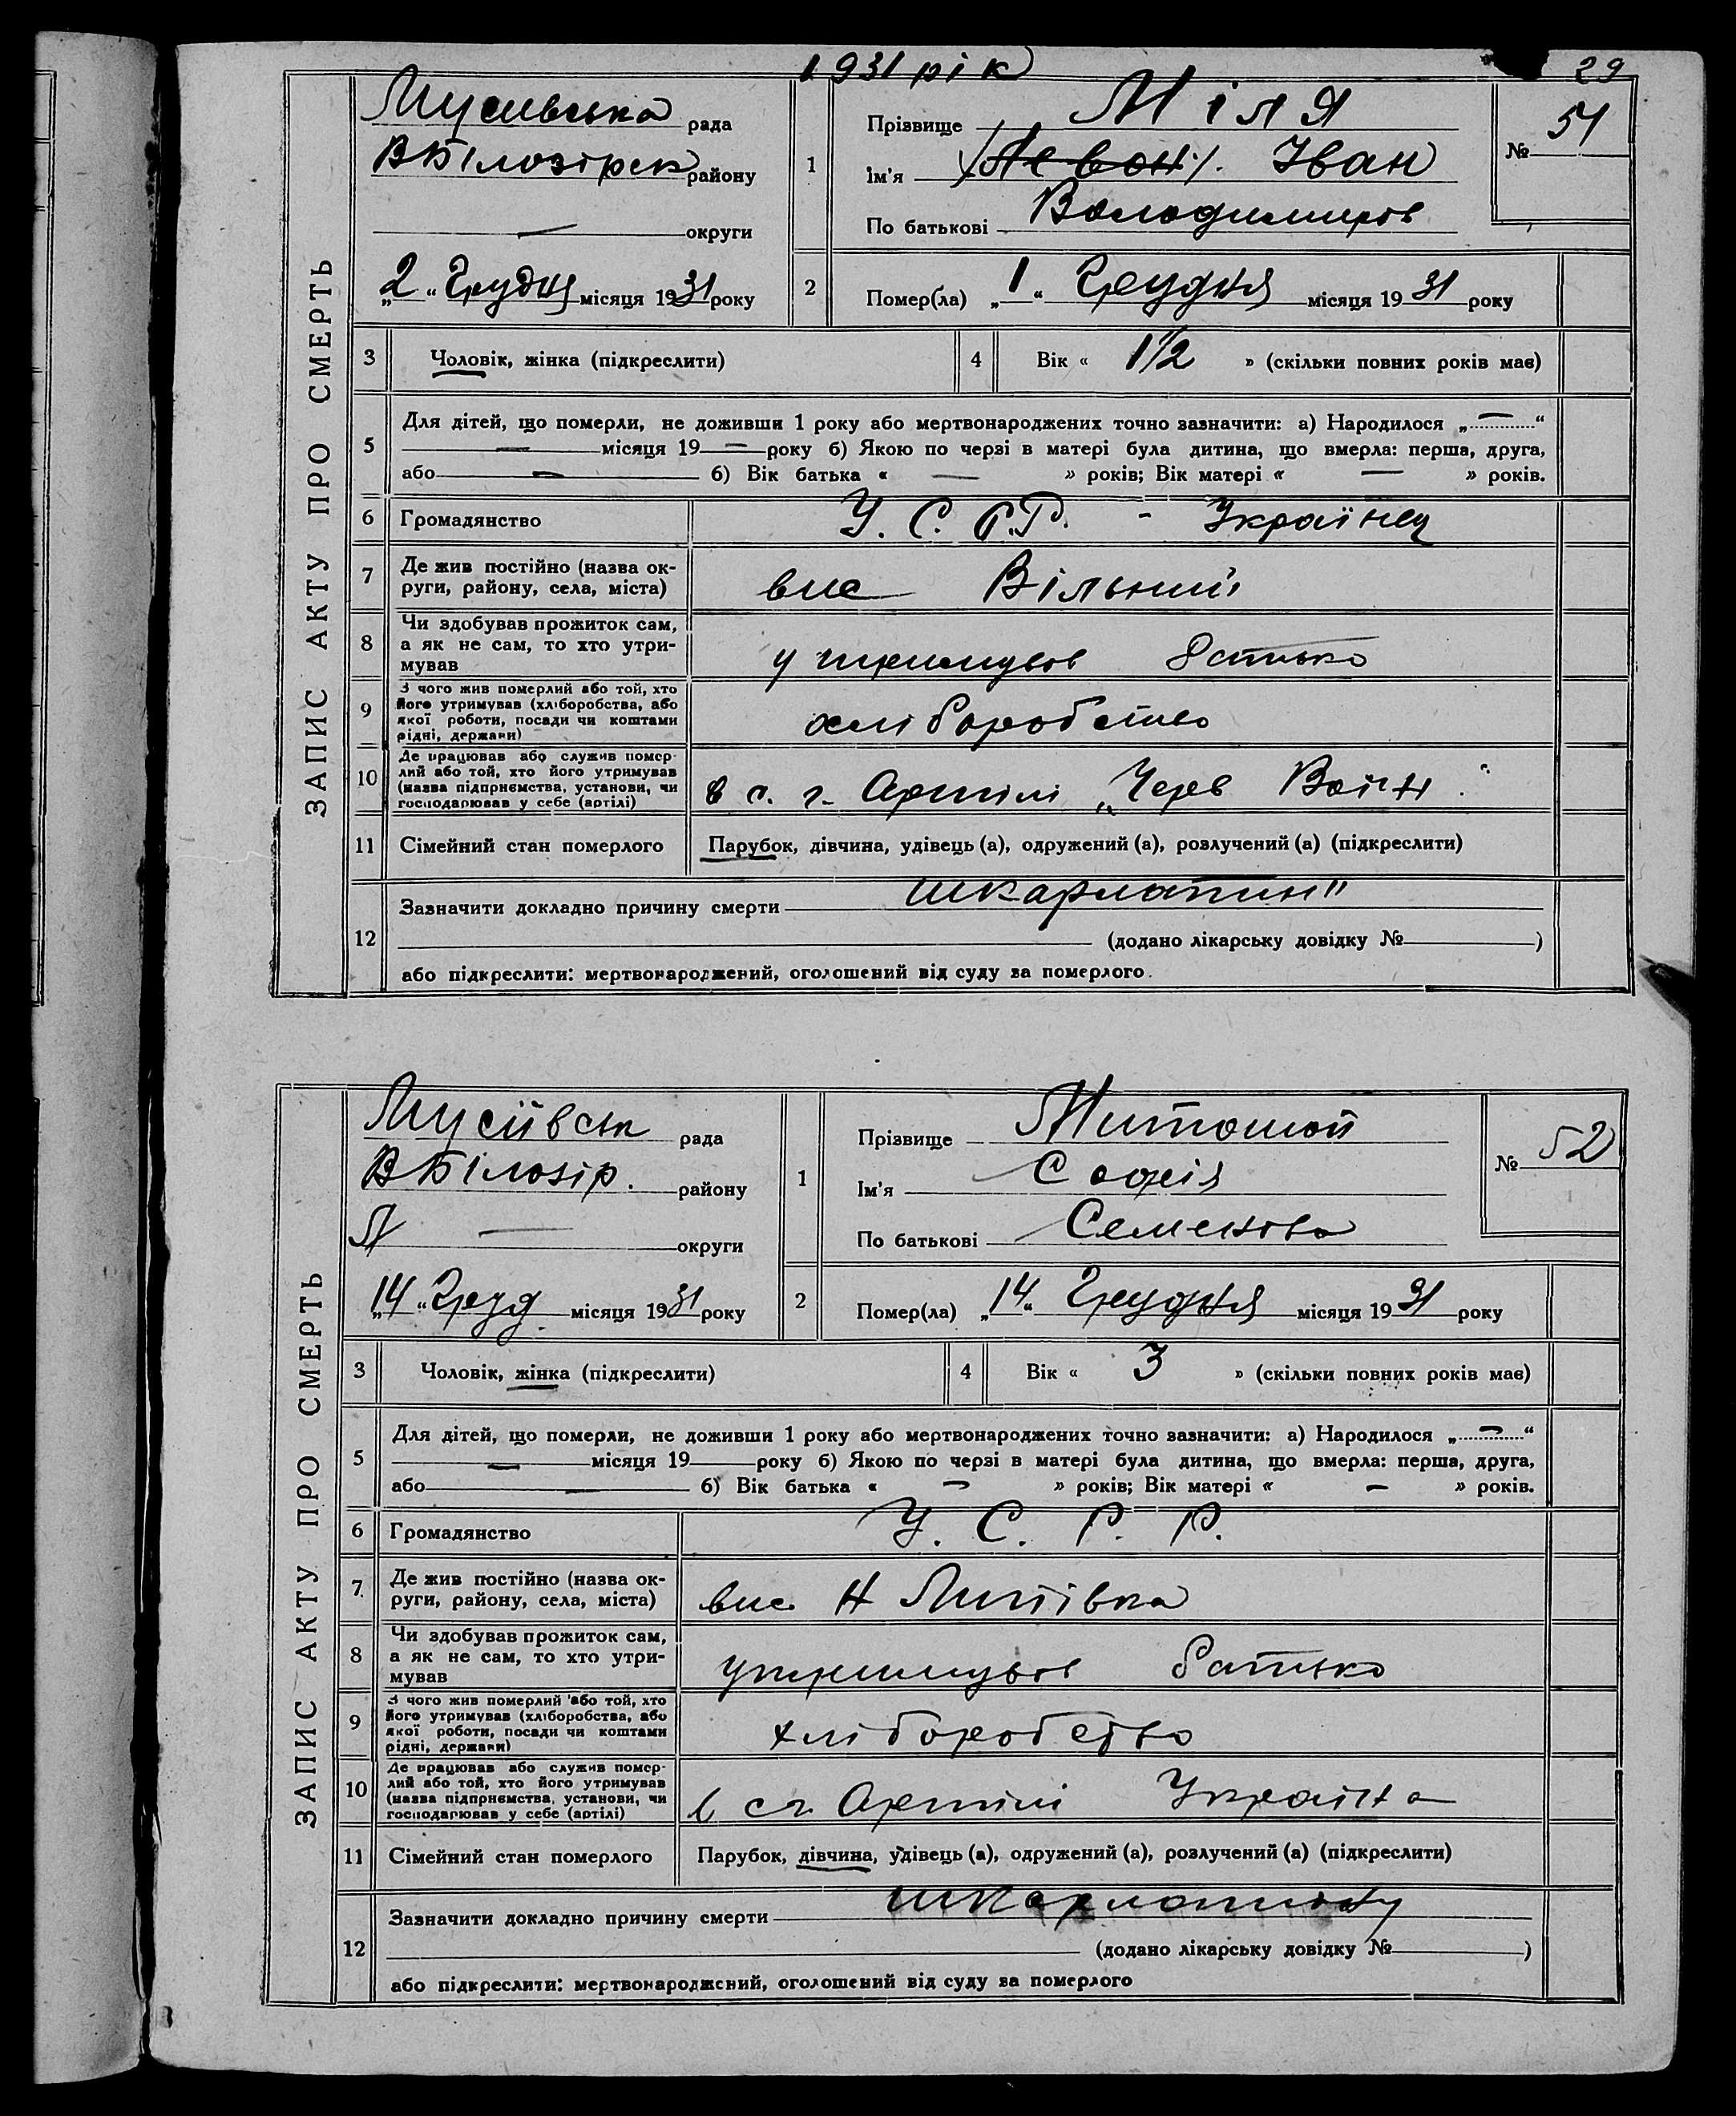 1931 рік
29
ЗАПИС АКТУ ПРО СМЕРТЬ
Мусиевська рада
ВБілозірск району
— округи
„2“ Грудня місяця 1931 року
1
Прізвище Міля
Ім'я Іван
По батькові Володимиров
№ 51
2
Помер(ла) „1“ Грудня місяця 1931 року
3 Чоловік, жінка (підкреслити)
4 Вік « 1 1/2 » (скільки повних років має)
5
Для дітей, що померли, не доживши 1 року або мертвонароджених точно зазначити: а) Народилося „—“
— місяця 19 — року б) Якою по черзі в матері була дитина, що вмерла: перша, друга,
або — б) Вік батька « — » років; Вік матері « — » років.
6 Громадянство У. С. Р.Р. - Українец
7 Де жив постійно (назва ок-
руги, району, села, міста)
вис Вільний
8 Чи здобував прожиток сам,
а як не сам, то хто утри-
мував
утримував батько
9 З чого жив померлий або той, хто
його утримував (хліборобства, або
якої роботи, посади чи коштами
рідні, держави)
хліборобство
10 Де працював або служив помер-
лий або той, хто його утримував
(назва підприємства, установи, чи
господарював у себе (артілі)
в с. г. Артілі „Черв
11 Сімейний стан померлого Парубок, дівчина, удівець (а), одружений (а), розлучений (а) (підкреслити)
12
Зазначити докладно причину смерти шкарлатин
(додано лікарську довідку № )
або підкреслити: мертвонароджений, оголошений від суду за померлого.
ЗАПИС АКТУ ПРО СМЕРТЬ
Мусіївськ рада
ВБілозір. району
— округи
„14“ Груд місяця 1931 року
1
Прізвище
Ім'я Софія
По батькові Семенова
№ 52
2
Помер(ла) „14“ Грудня місяця 1931 року
3 Чоловік, жінка (підкреслити)
4 Вік « 3 » (скільки повних років має)
5
Для дітей, що померли, не доживши 1 року або мертвонароджених точно зазначити: а) Народилося „—“
— місяця 19 року б) Якою по черзі в матері була дитина, що вмерла: перша, друга,
або — б) Вік батька « — » років; Вік матері « — » років.
6 Громадянство У. С. Р. Р.
7 Де жив постійно (назва ок-
руги, району, села, міста)
вис. Н
8 Чи здобував прожиток сам,
а як не сам, то хто утри-
мував
утримував батько
9 З чого жив померлий або той, хто
його утримував (хліборобства, або
якої роботи, посади чи коштами
рідні, держави)
хліборобство
10 Де працював або служив помер-
лий або той, хто його утримував
(назва підприємства, установи, чи
господарював у себе (артілі)
в сг. Артілі Україна
11 Сімейний стан померлого Парубок, дівчина, удівець (а), одружений (а), розлучений (а) (підкреслити)
12
Зазначити докладно причину смерти шкарлатину
(додано лікарську довідку № )
або підкреслити: мертвонароджений, оголошений від суду за померлого